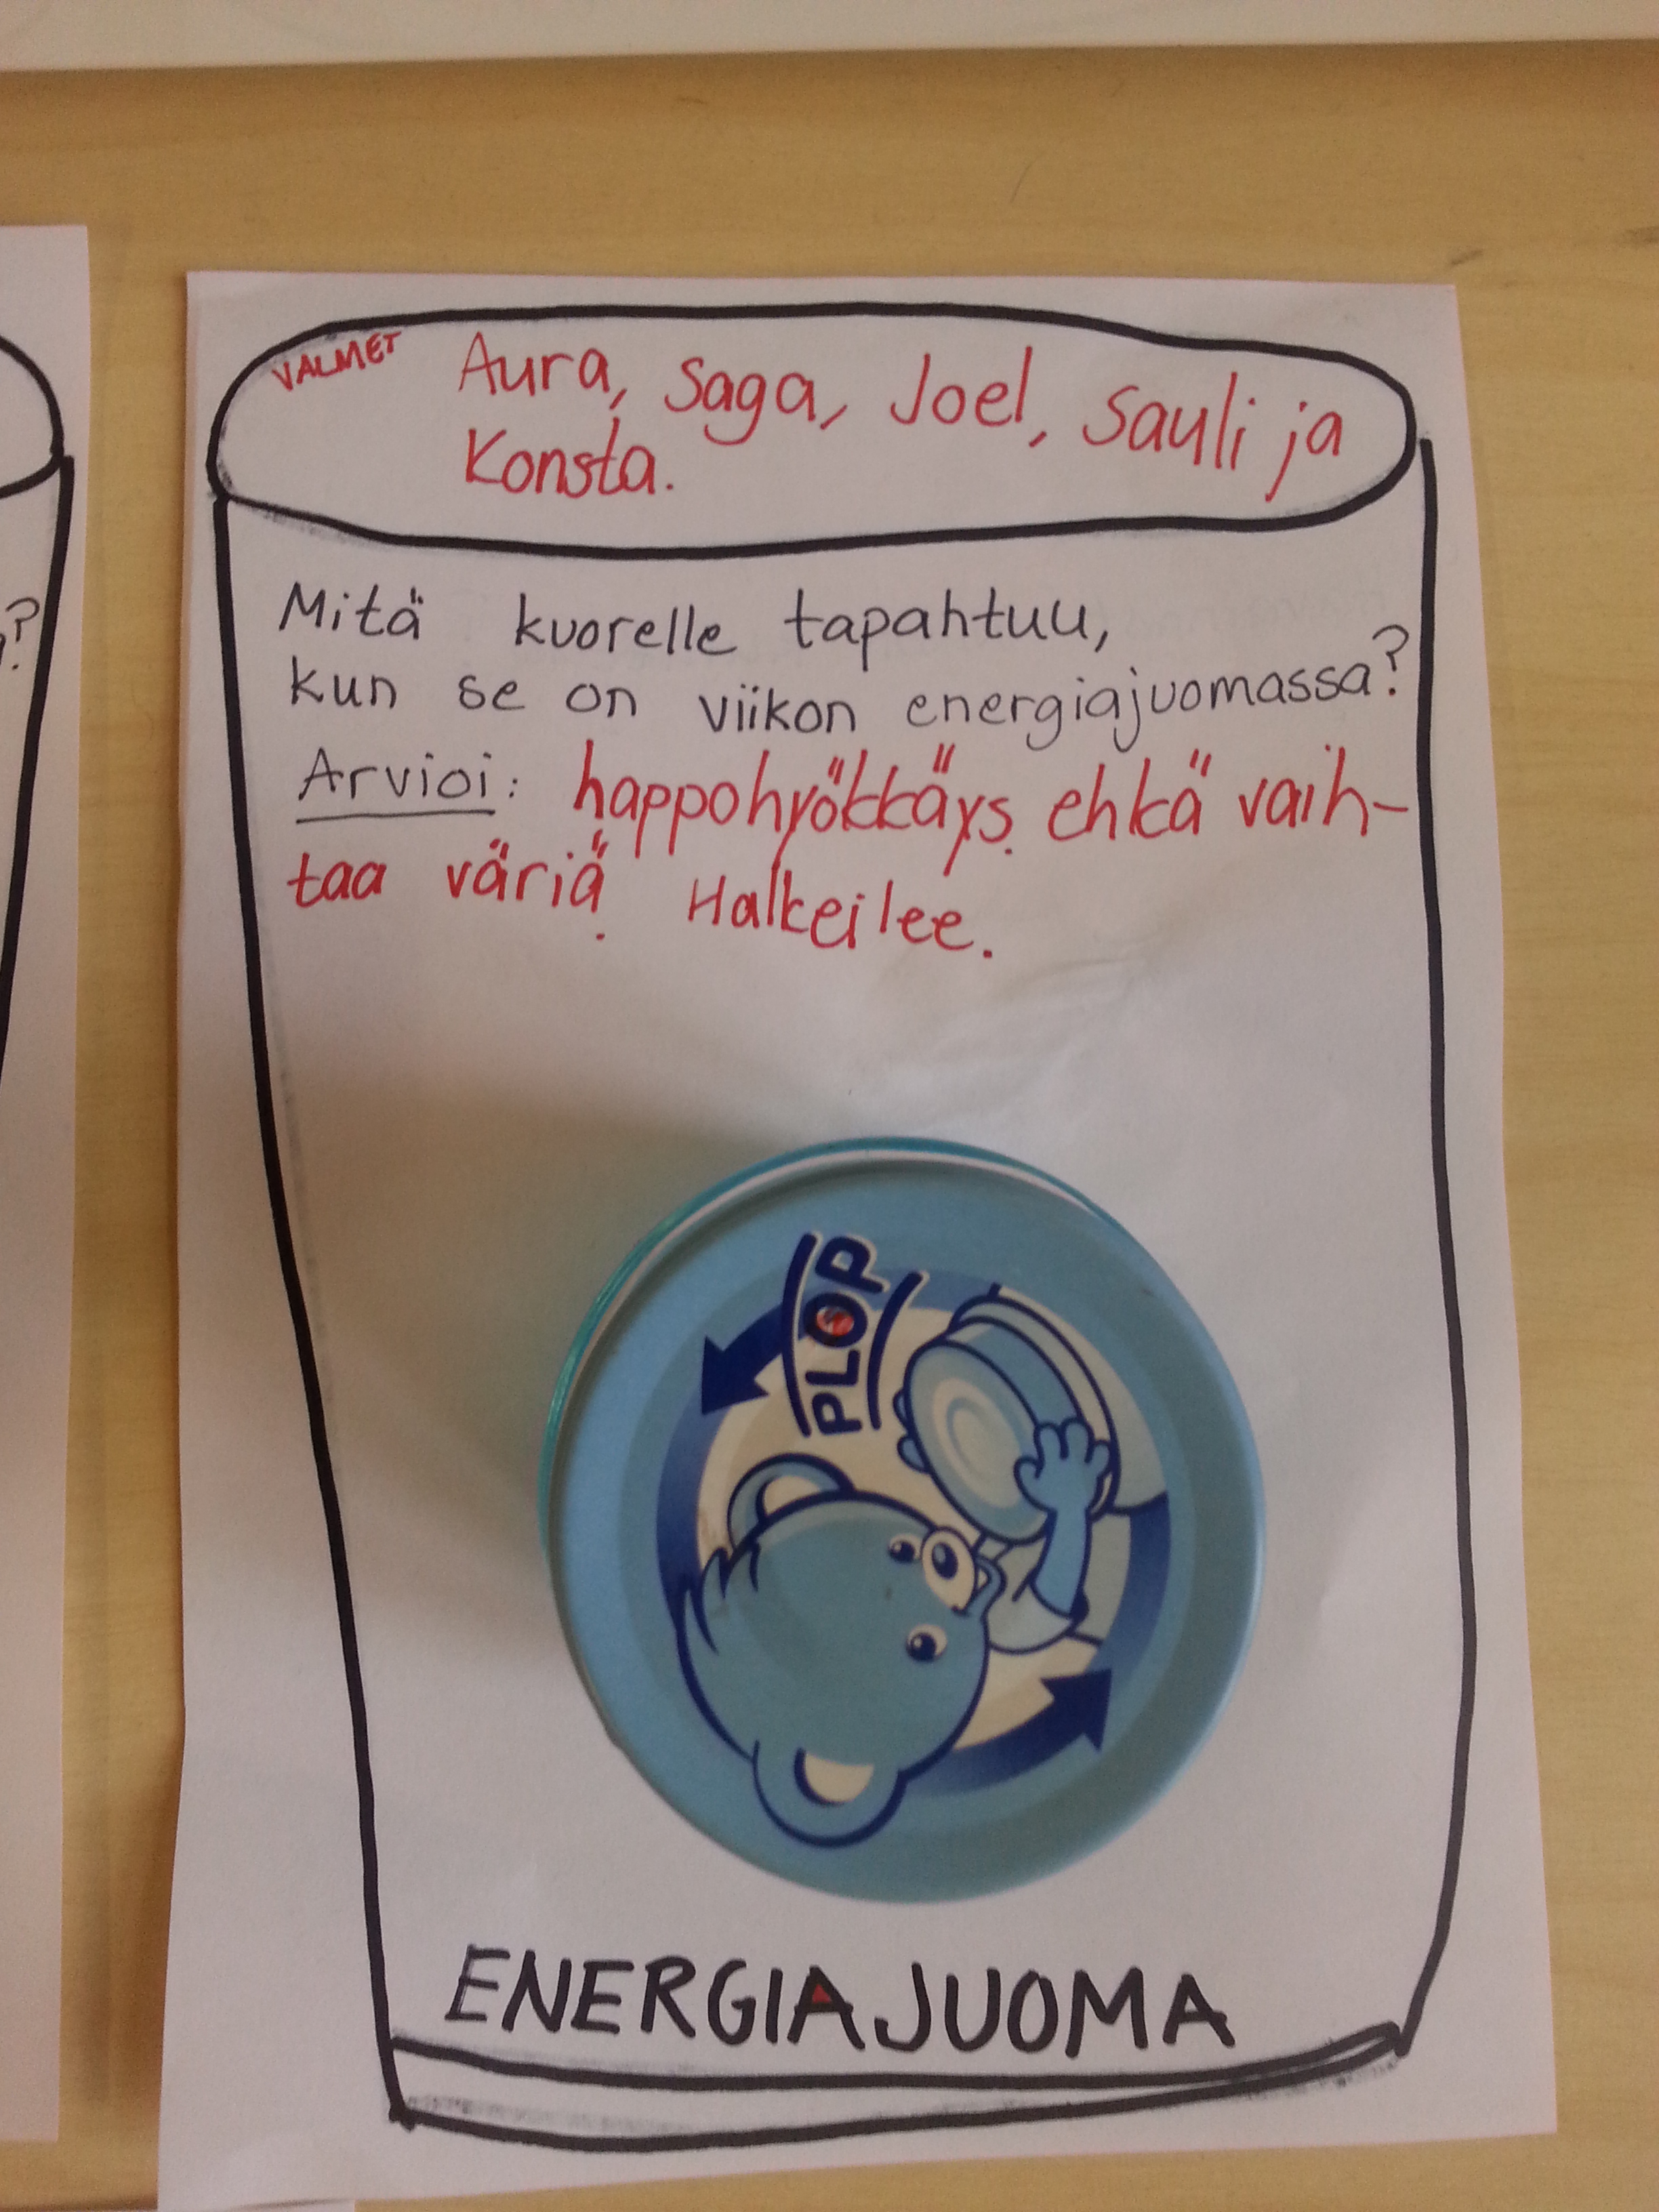 VALMET
Aura, Saga, Joel, Sauli ja
Konsta.
Mitä kuorelle tapahtuu,
kun se on viikon energiajuomassa?
Arvioi: happohyökkäys. ehkä vaih-
taa väriä. Halkeilee.
PLOP
ENERGIAJUOMA
?